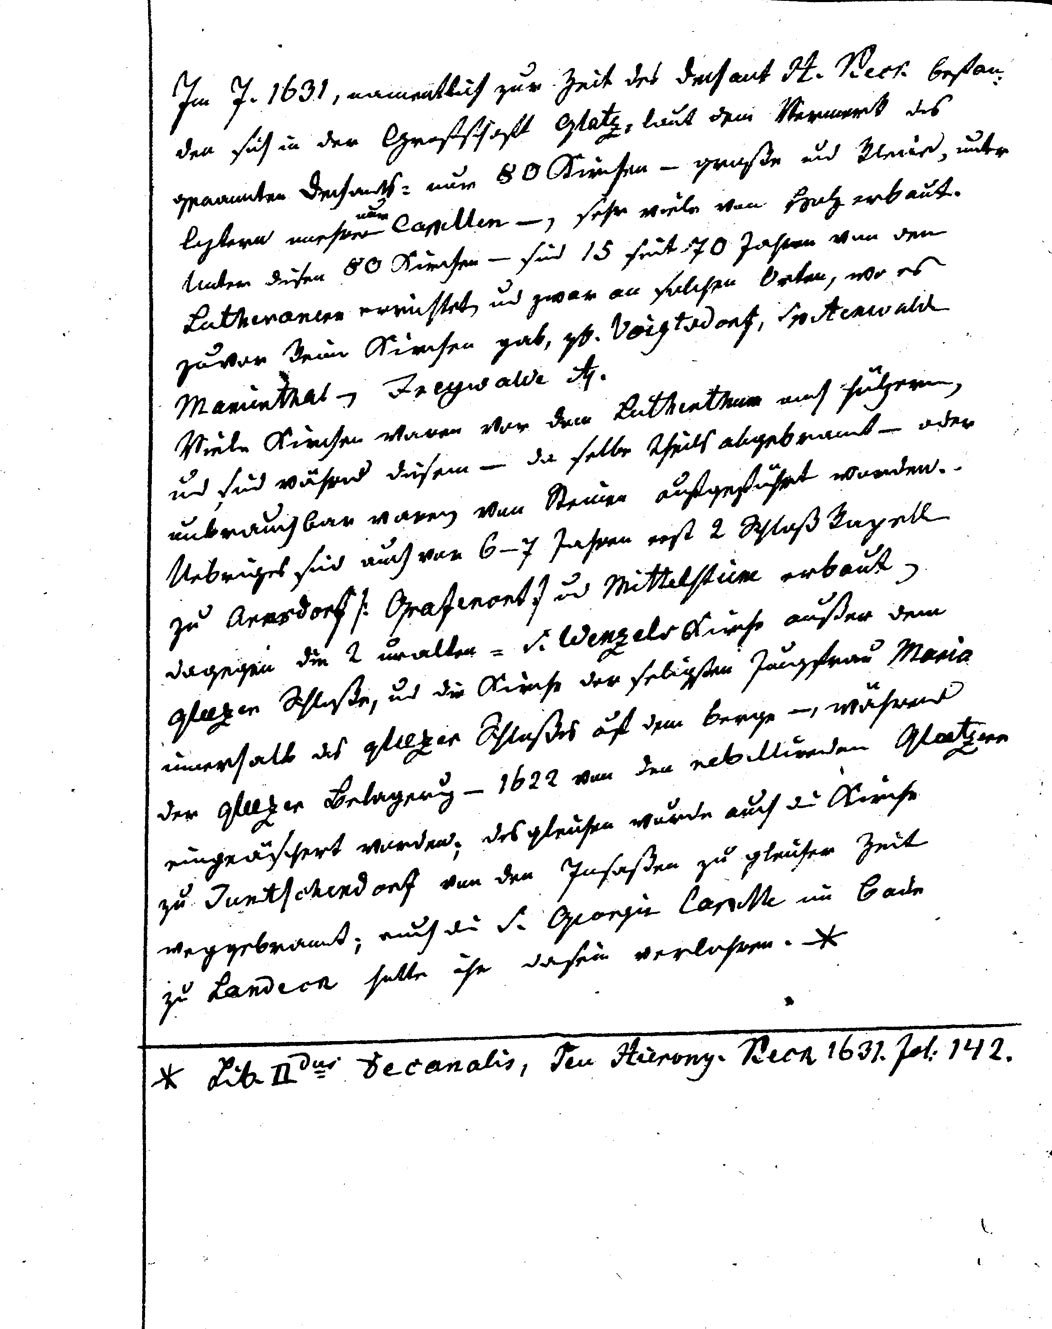 Im J. 1631, namentlich zur Zeit des Dechant H. Keck befan-
den sich in der Grafschaft Glatz, laut dem Vermerk des
genannten Dechants = nur 80 Kirchen — große und kleine, unter
letztern mehrere nur Capellen —, sehr viele von Holz erbaut.
Unter diesen 80 Kirchen — sind 15 seit 70 Jahren von den
Lutheranern errichtet, und zwar an solchen Orten, wo es
zuvor keine Kirchen gab, zb. Voigtsdorf, Spätenwalde
Marienthal, Freywalde
Viele Kirchen waren vor dem Lutherthum auch hölzern,
und sind während diesem — da selbe theils abgebrannt — oder
unbrauchbar waren, von Steinen aufgeführt worden.
Uebriges sind auch vor 6–7 Jahren erst 2 Schloß Kapell
zu Arnsdorf /: Grafenort :/ und Mittelsteine erbaut,
dagegen die 2 uralten = S. Wenzels Kirche außer dem
glatzer Schloße, und die Kirche der seligsten Jungfrau Maria
innerhalb des glatzer Schloßes auf dem Berge —, während
der glatzer Belagerung — 1622 von den rebellirenden Glatzern
eingeäschert worden; desgleichen wurde auch die Kirche
zu Iuntschendorf von den Insaßen zu gleicher Zeit
weggebrannt; auch die S. Georgii Capelle im Bade
zu Landeck hatte ihr Dasein verlohren. *
* Lib. II Dus Decanalis, Hierony. Keck 1631. fol: 142.